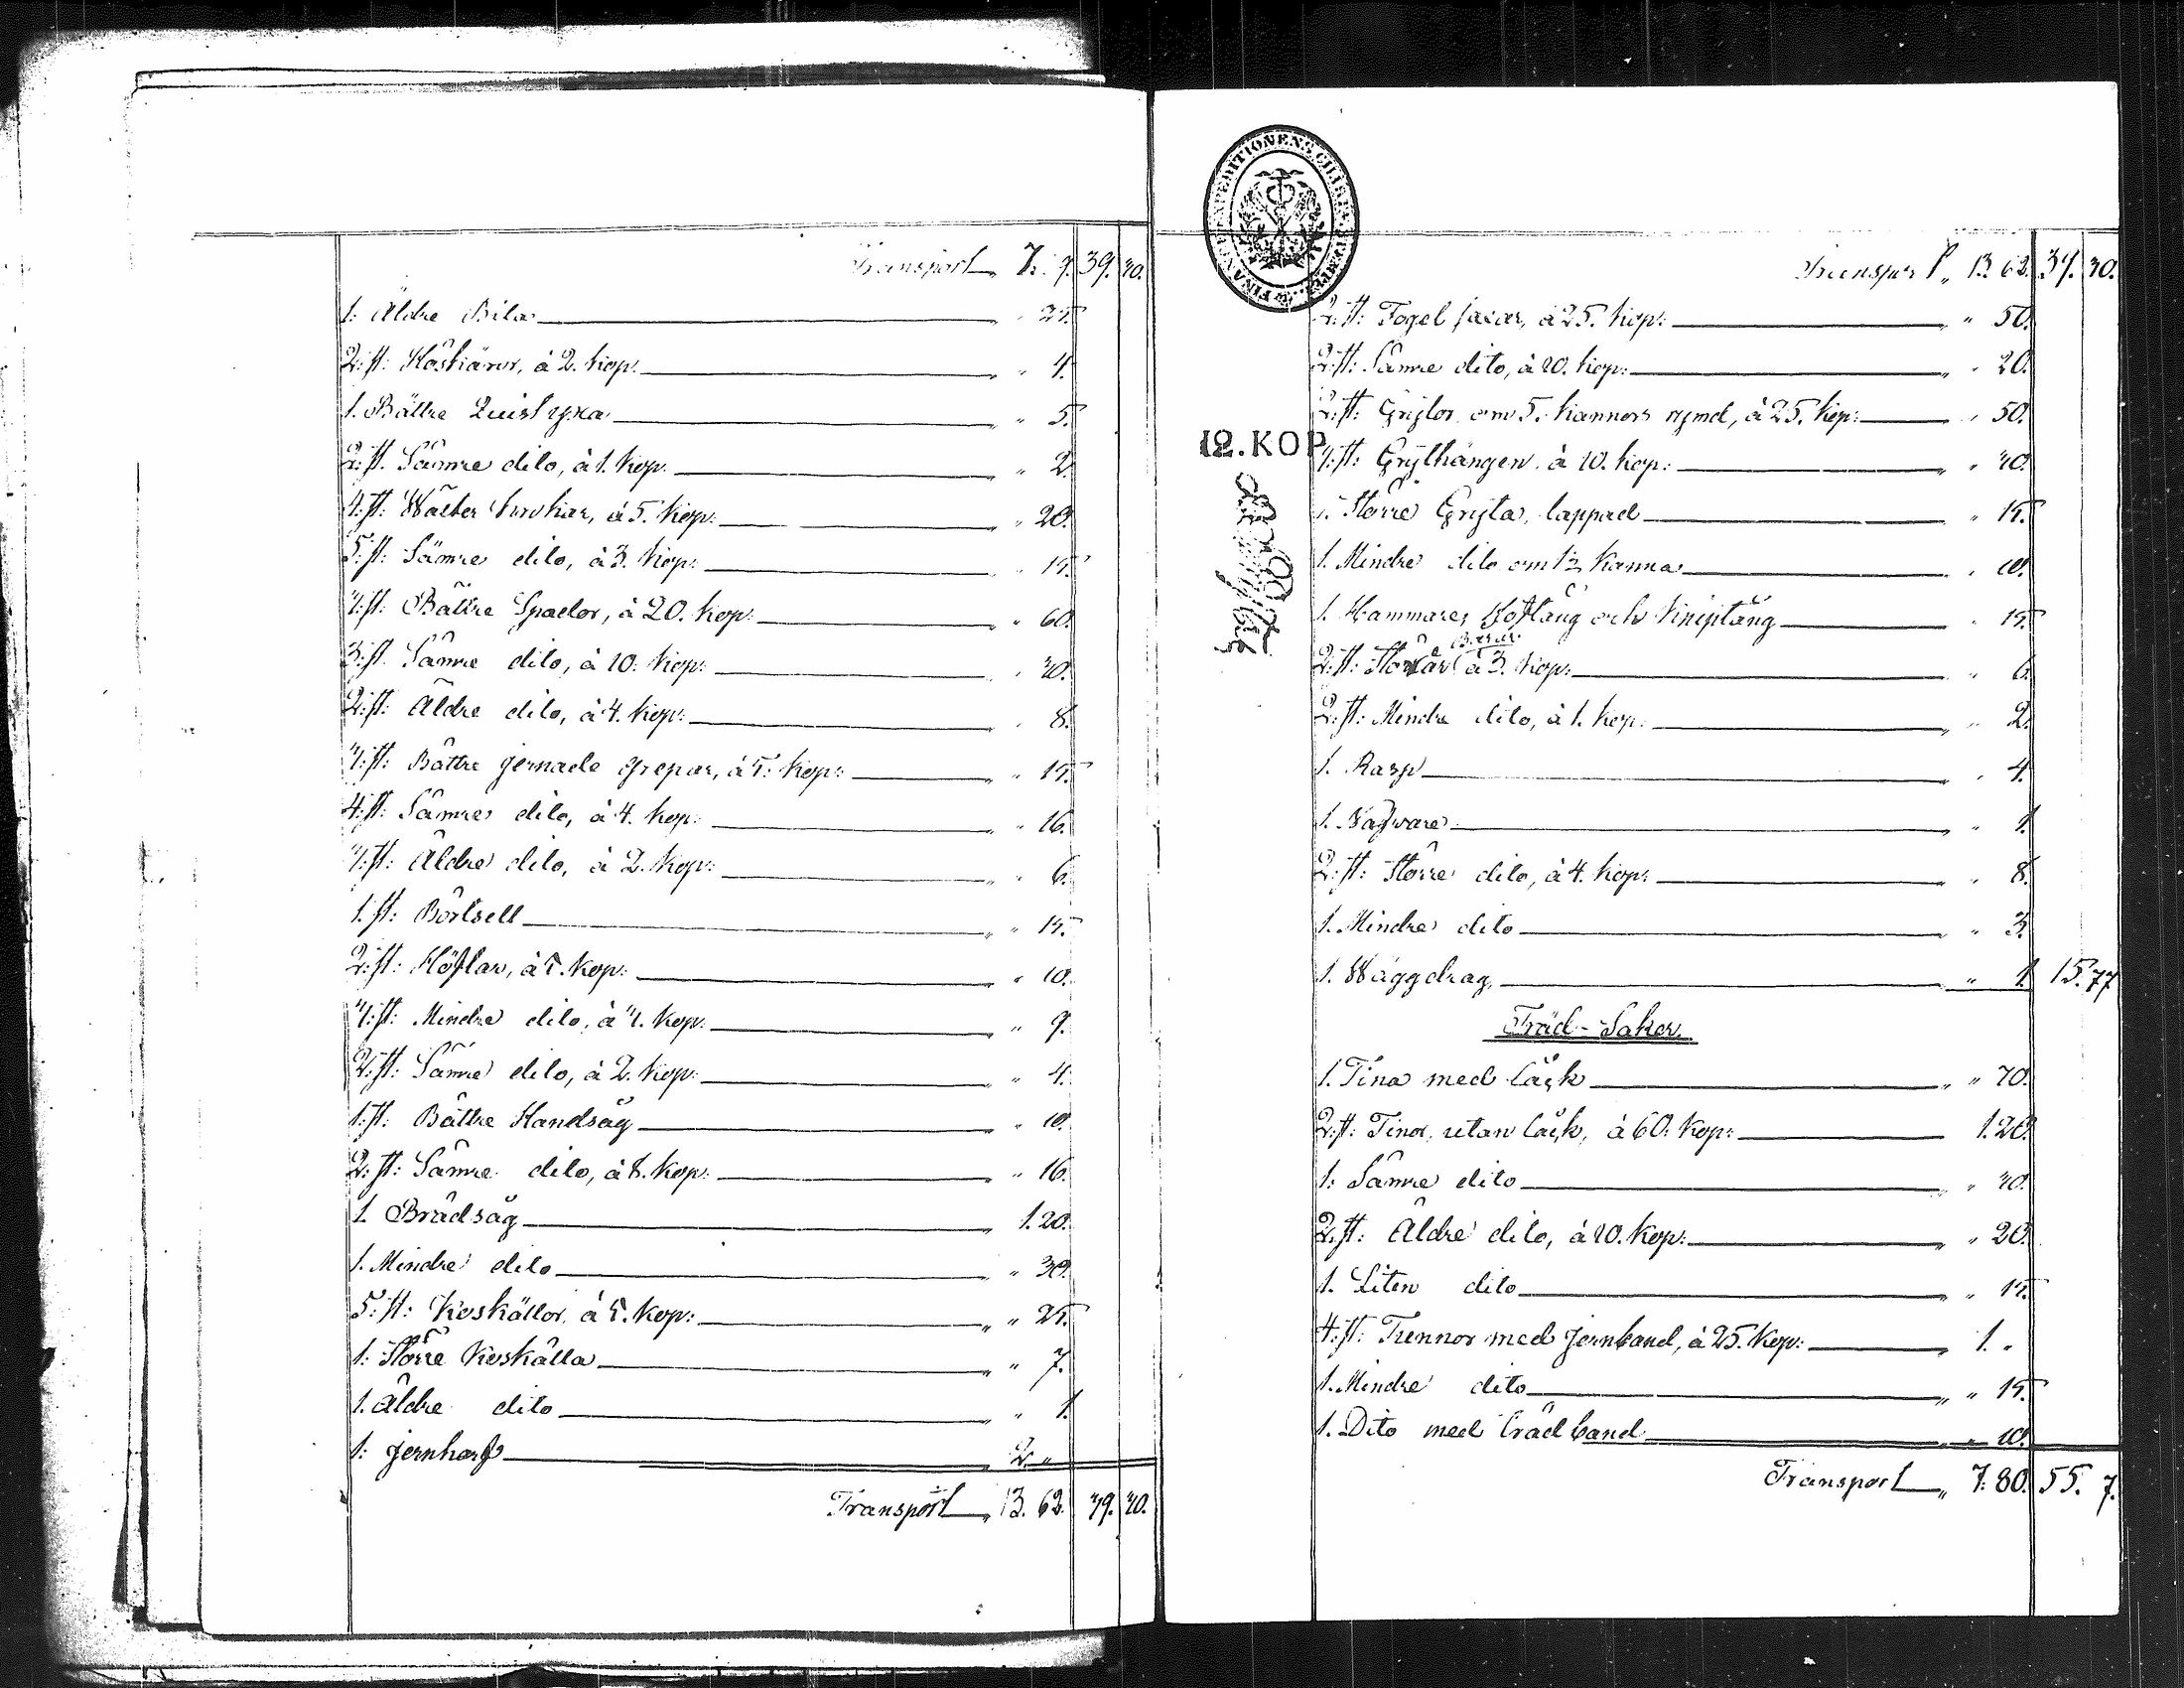 Transport 7. 9. 39. 30.
1: Äldre Bila 25.
2: st: Höskäror, à 2. kop: 4.
1. Bättre Quistyxa 5.
2: st. Sämre dito, à 1. kop. 2.
4: st: à 5. kop: 20.
5: st: Sämre dito, à 3. kop: 15.
3: st: Bättre Spador, à 20. kop: 60.
3: st. Sämre dito, à 10. kop: 30.
2: st: Äldre dito, à 4. kop: 8.
3: st: Bättre jernade grepar, à 5: kop: 15.
4: st: Sämre dito, à 4. kop: 16.
3: st: Äldre dito, à 2. kop: 6.
1. st: 15.
2: st: Höflar, à 5. kop: 10.
3: st: Mindre dito, à 3. kop: 9.
2: st: Sämre dito, à 2. kop: 4.
1: st: Bättre Handsåg 10.
2: st: Sämre dito, à 8. kop: 16.
1. Brädsåg 1. 20.
1. Mindre dito 30.
5: st: Koskällor, à 5. kop: 25.
1: Större Koskälla 7.
1. Äldre dito 1.
1: Jernharf 2. "
Transport 13. 62. 39. 30.
FINANCE EXPEDITIONENS
Transport 13. 62. 39. 30.
2: st: Fogel saxar, à 25. kop: 50.
2: st: Sämre dito, à 10. kop: 20.
2: st: Grytor om 5. kannors rymd, à 25. kop: 50.
12. KOP
3: st: Grythängen à 10. kop: 30.
1. Större Gryta, lappad 15.
1. Mindre dito om 1½ kanna 10.
1. Hammare, Hoftång och Kniptång 15.
Borar
2: st: à 3. kop: 6.
2: st: Mindre dito, à 1. kop: 2.
1. Rasp 4.
1. Nafvare 1.
2: st: Större dito, à 4. kop: 8.
1. Mindre dito 3.
1. Wäggdrag 1. 15. 77
Träd-Saker.
1. Tina med låck 70.
2: st: Tinor utan låck, à 60: kop: 1. 20.
1: Sämre dito 30.
2: st: Äldre dito, à 10. kop: 20.
1. Liten dito 15.
4: st: Tunnor med jernband, à 25. kop: 1. "
1. Mindre dito 15.
1. Dito med trädband 10.
Transport 7. 80. 55. 7.